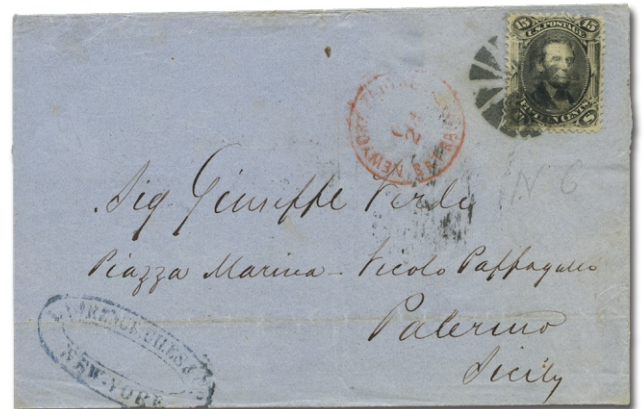 15 15
U.S. POSTAGE
FIFTEEN CENTS
U S
NEW YORK
N 6
Sig Giuseppe Verde
Piazza Marina - Vicolo Pappagallo
Palermo
Sicily
LAWRENCE
NEW-YORK